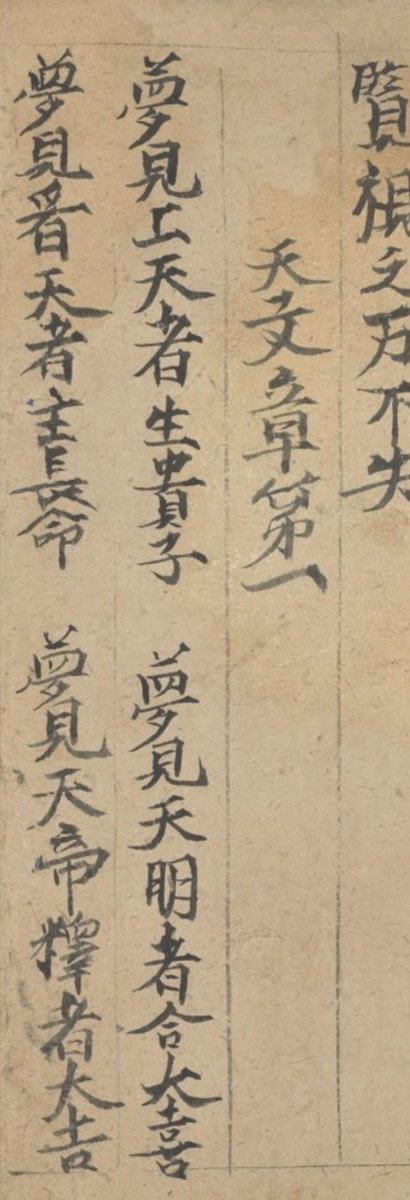 覽視之万不失
天文章第一
夢見上天者生貴子 夢見天明者合大喜
夢見看天者主長命 夢見天帝釋者大吉